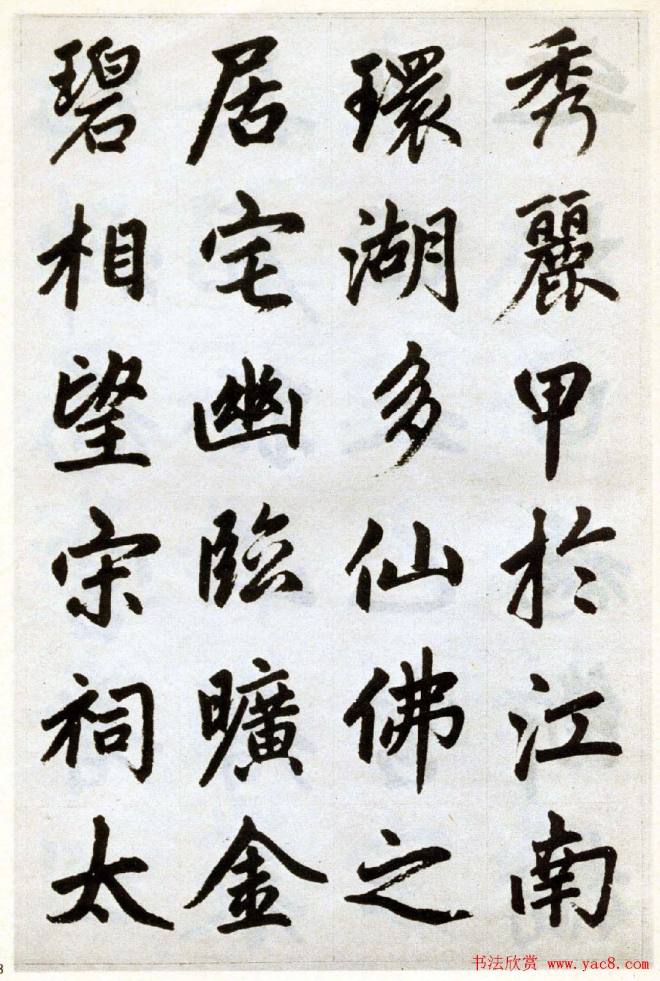 秀麗甲於江南
環湖多仙佛之
居宅幽臨曠金
碧相望宋祠太
8
书法欣赏 www.yac8.com